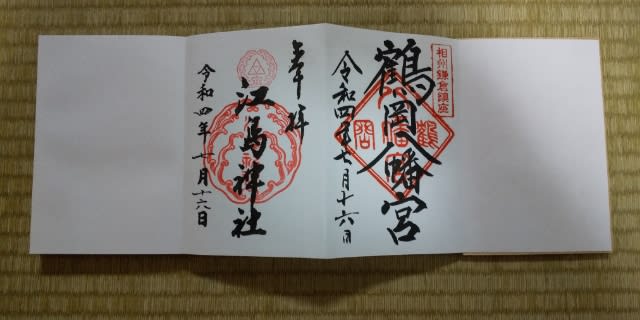 相州鎌倉鎮座
鶴岡八幡宮
令和四年七月十六日
奉拝
江島神社
令和四年七月十六日